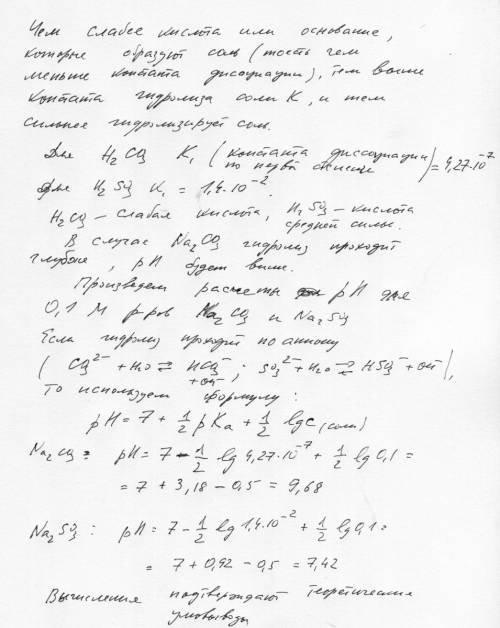 Чем слабее кислота или основание,
которые образуют соль (тость чем
меньше контата дисоциации), тем выше
контата гидролиза соли K, и тем
сильнее гидролизирует соль.
Для H₂CO₃ K₁ (контата диссоциации по первой ступени) = 4,27·10⁻⁷
Для H₂SO₃ K₁ = 1,4·10⁻².
H₂CO₃ – слабая кислота, H₂SO₃ – кислота
средней силы.
В случае Na₂CO₃ гидролиз проходит
глубже, pH будет выше.
Произведем расчеты pH для
0,1 M р-ров Na₂CO₃ и Na₂SO₃
Если гидролиз проходит по аниону
(CO₃²⁻ + H₂O ⇄ HCO₃⁻ + OH⁻; SO₃²⁻ + H₂O ⇄ HSO₃⁻ + OH⁻),
то используем формулу:
pH = 7 + 1/2 pKa + 1/2 lgc (соли)
Na₂CO₃: pH = 7 - 1/2 lg 4,27·10⁻⁷ + 1/2 lg 0,1 =
= 7 + 3,18 – 0,5 = 9,68
Na₂SO₃: pH = 7 - 1/2 lg 1,4·10⁻² + 1/2 lg 0,1 =
= 7 + 0,92 – 0,5 = 7,42
Вычисления подтверждают теоретические
умовыводы